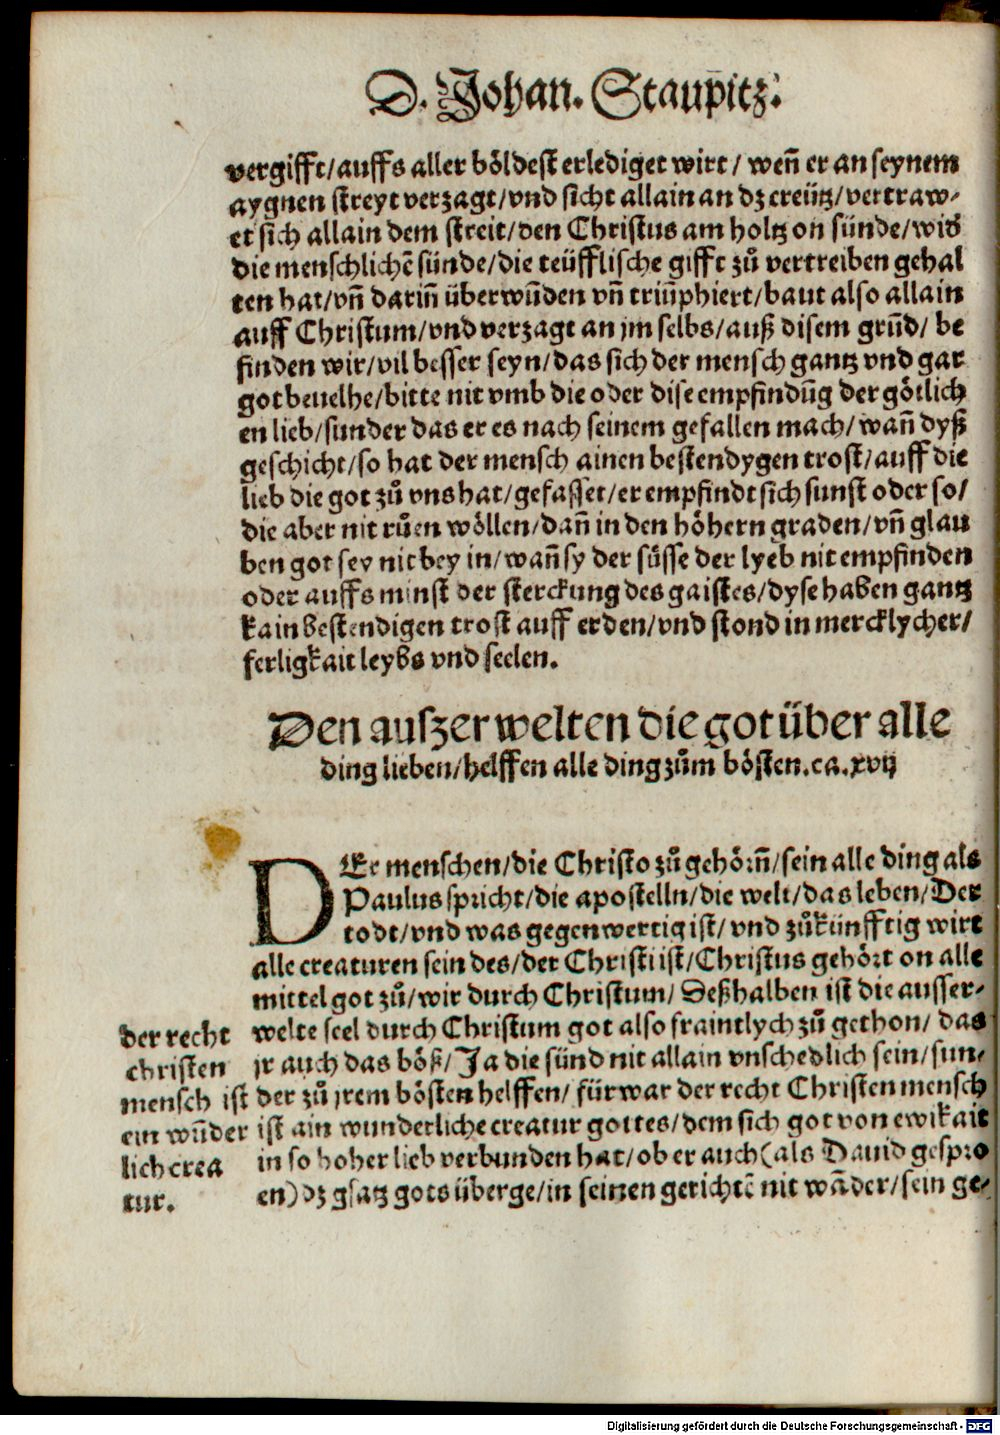 D. Johan. Staupitz.
vergifft/auffs aller böldest erlediget wirt/ weñ er an seynem
aygnen streyt verzagt/vnd sicht allain an dz creütz/vertraw-
et sich allain dem streit/den Christus am holtz on sünde/wid
die menschlichē sünde/die teüfflische gifft zů vertreiben gehal
ten hat/vñ dariñ überwūden vñ triūphiert/baut also allain
auff Christum/vnd verzagt an jm selbs/auß disem grūd/ be
finden wir/vil besser seyn/das sich der mensch gantz vnd gar
got beuelhe/bitte nit vmb die oder dise empfindūg der götlich
en lieb/sunder das er es nach seinem gefallen mach/wañ dyß
geschicht/so hat der mensch ainen bestendygen trost/auff die
lieb die got zů vns hat/gefasset/er empfindt sich sunst oder so/
die aber nit růen wöllen/dañ in den höhern graden/vñ glau
ben got sey nit bey in/wañ sy der süsse der lyeb nit empfinden
oder auffs minst der sterckung des gaistes/dyse haben gantz
kain bestendigen trost auff erden/vnd stond in mercklycher/
ferligkait leybs vnd seelen.
Den auszerwelten die got über alle
ding lieben/helffen alle ding zům bösten.ca.xvij
DEr menschen/die Christo zů gehörñ/sein alle ding als
Paulus spricht/die apostelln/die welt/das leben/Der
todt/vnd was gegenwertig ist/ vnd zůkünfftig wirt
alle creaturen sein des/der Christi ist/Christus gehört on alle
mittel got zů/wir durch Christum/ Deßhalben ist die ausser-
welte seel durch Christum got also fraintlych zů gethon/ das
jr auch das böß/Ja die sünd nit allain vnschedlich sein/sun-
der zů jrem bösten helffen/ fürwar der recht Christen mensch
ist ain wunderliche creatur gottes/dem sich got von ewikait
in so hoher lieb verbunden hat/ob er auch(als Dauid gespro
en)dz gsatz gots überge/in seinen gerichtē nit wāder/sein ge-
der recht
christen
mensch ist
ein wūder
lich crea
tur.
Digitalisierung gefördert durch die Deutsche Forschungsgemeinschaft - DFG